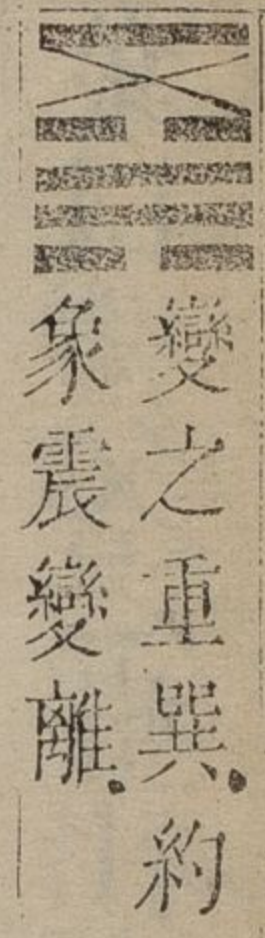 變之重巽.約
象震變離.